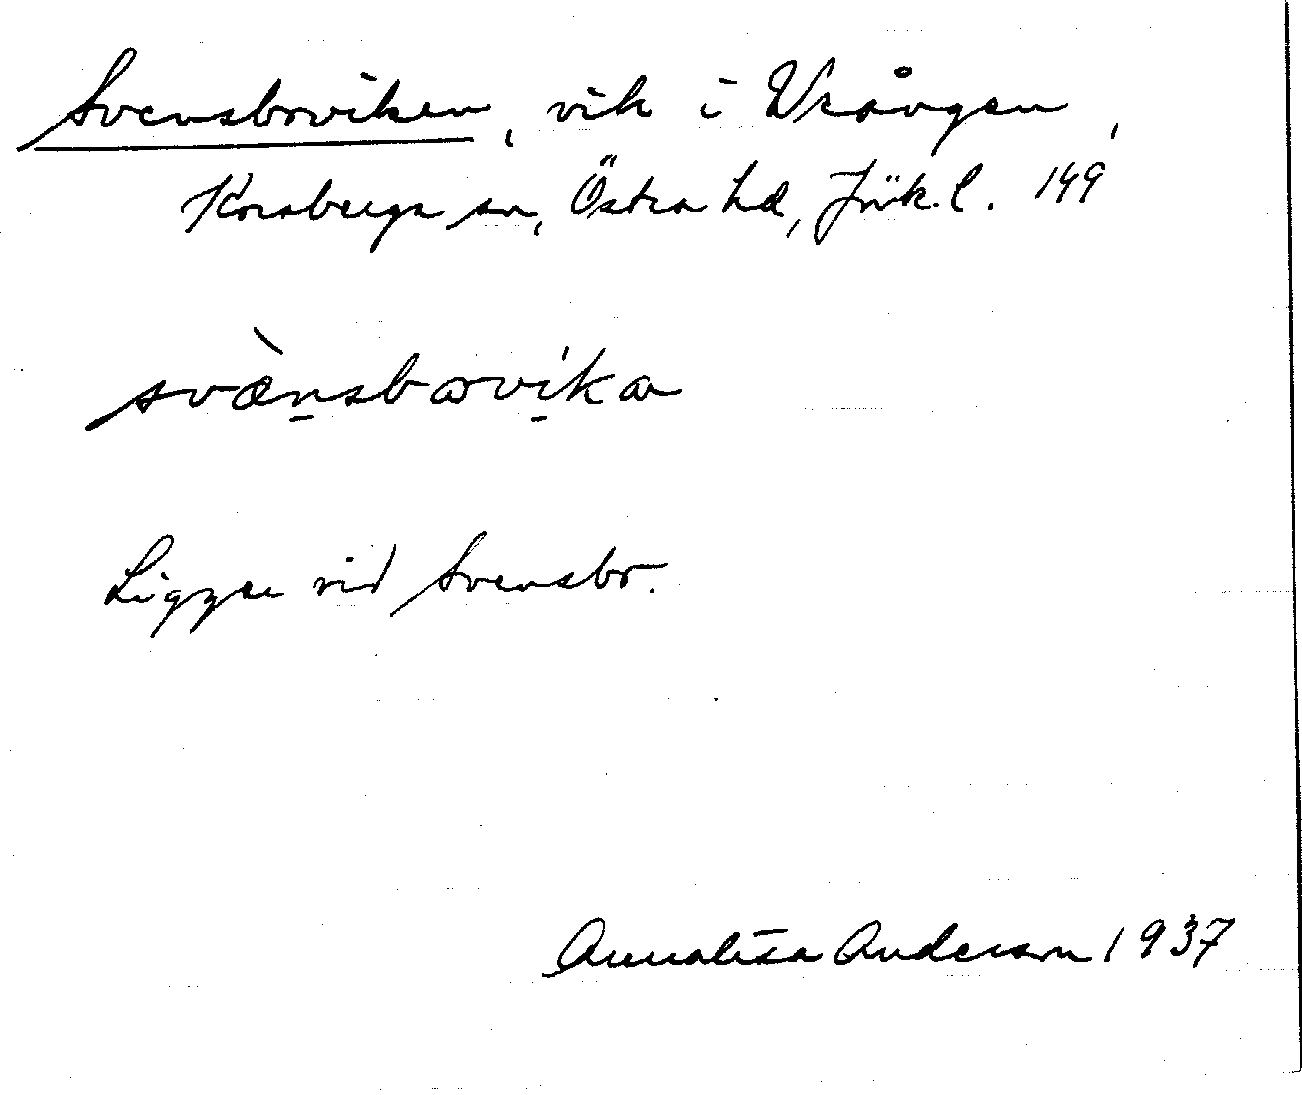 Svensboviken, vik i Vrången,
Korsberga sn, Östra hd, Jönk. l. 149
svæ̀nsbωvika
Ligger vid Svensbo.
Annalisa Anderson 1937